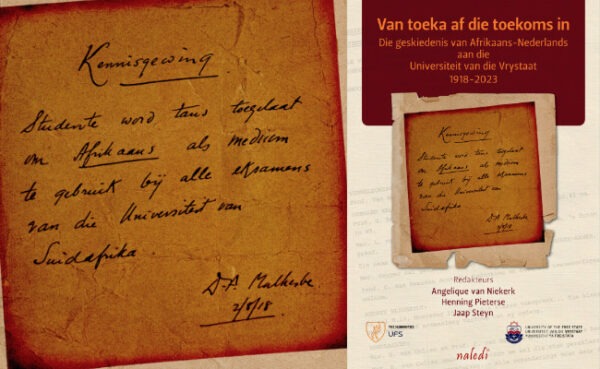 Kennisgewing.
Studente word tans toegelaat
om Afrikaans als medium
te gebruik bij alle eksamens
van die Universiteit van
Suidafrika.
D.F. Malherbe
2/8/18
Van toeka af die toekoms in
Die geskiedenis van Afrikaans-Nederlands
aan die
Universiteit van die Vrystaat
1918–2023
Kennisgewing.
Studente word tans toegelaat
om Afrikaans als medium
te gebruik bij alle eksamens
van die Universiteit van
Suidafrika.
D.F. Malherbe
2/8/18
Redakteurs
Angelique van Niekerk
Henning Pieterse
Jaap Steyn
THE HUMANITIES
UFS
UNIVERSITY OF THE FREE STATE
UNIVERSITEIT VAN DIE VRYSTAAT
naledi